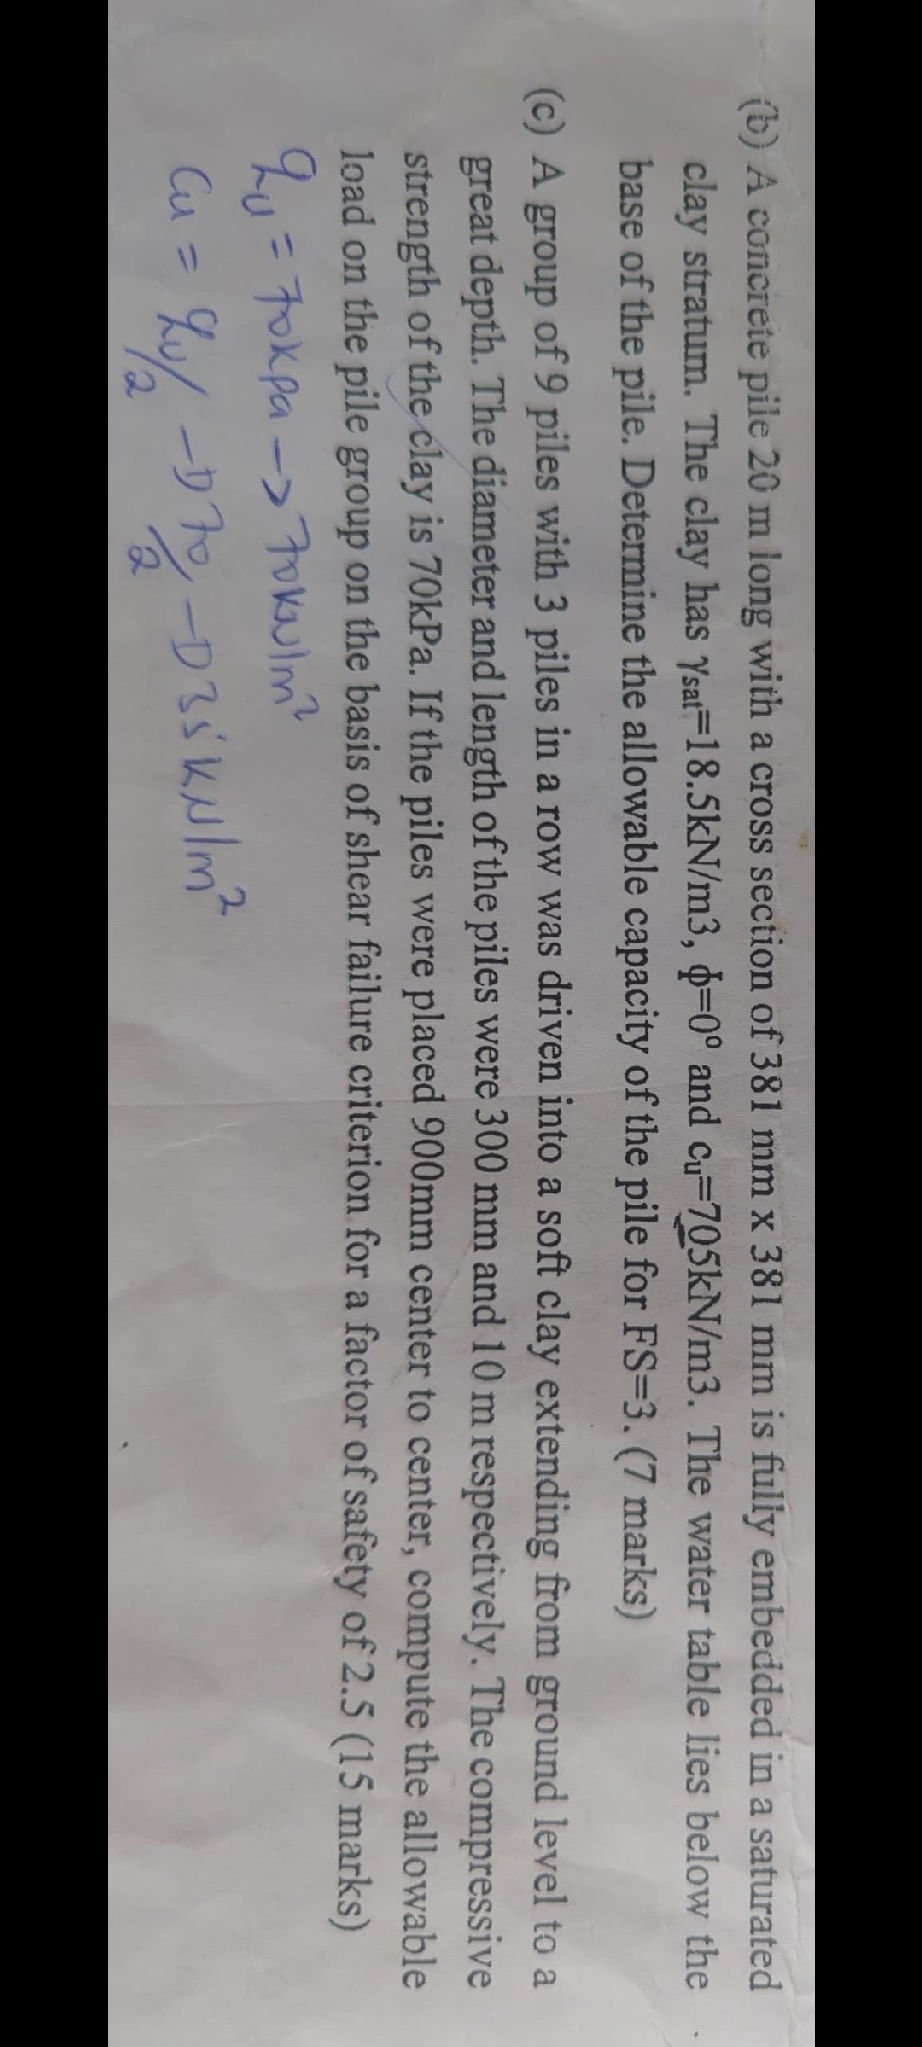 (b) A concrete pile 20 m long with a cross section of 381 mm x 381 mm is fully embedded in a saturated
clay stratum. The clay has γsat=18.5kN/m3, ϕ=0º and cu=705kN/m3. The water table lies below the
base of the pile. Determine the allowable capacity of the pile for FS=3. (7 marks)
(c) A group of 9 piles with 3 piles in a row was driven into a soft clay extending from ground level to a
great depth. The diameter and length of the piles were 300 mm and 10 m respectively. The compressive
strength of the clay is 70kPa. If the piles were placed 900mm center to center, compute the allowable
load on the pile group on the basis of shear failure criterion for a factor of safety of 2.5 (15 marks)
qu = 70kpa -> 70kN/m²
Cu = qu/2 -D 70/2 -D 35kN/m²